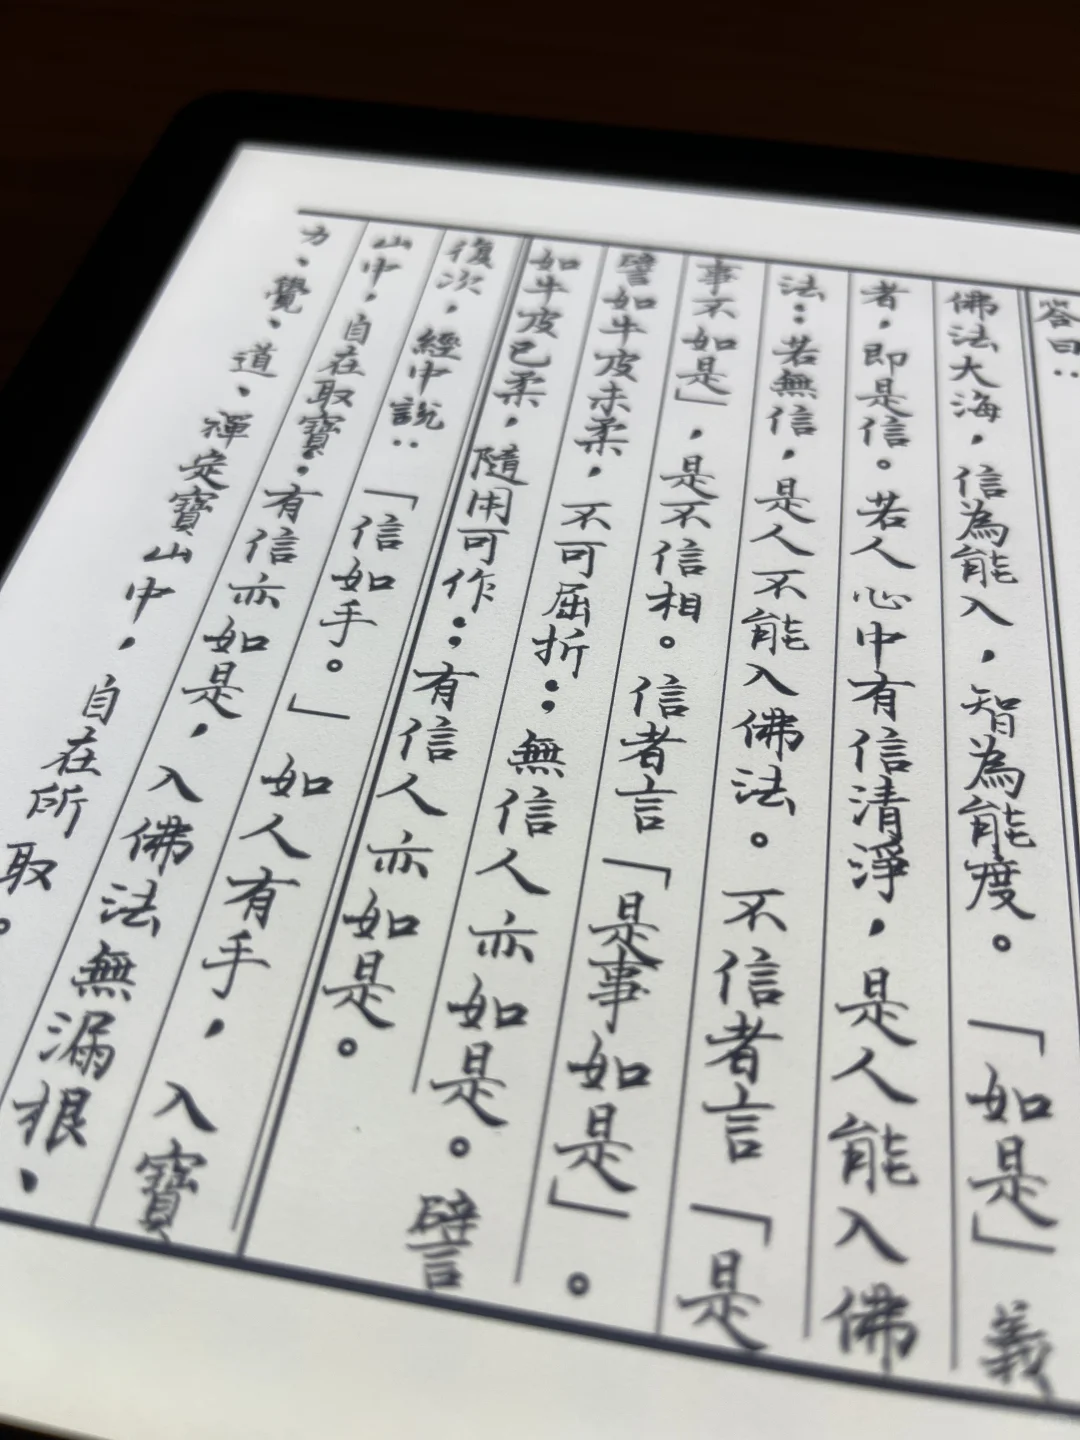 答曰：
佛法大海，信為能入，智為能度。「如是」義
者，即是信。若人心中有信清淨，是人能入佛
法：若無信，是人不能入佛法。不信者言「是
事不如是」，是不信相。信者言「是事如是」。
譬如牛皮未柔，不可屈折：無信人亦如是。譬
如牛皮已柔，隨用可作：有信人亦如是。
復次，經中說：「信如手。」如人有手，入寶
山中，自在取寶。有信亦如是，入佛法無漏根、
力、覺、道、禪定寶山中，自在所取。